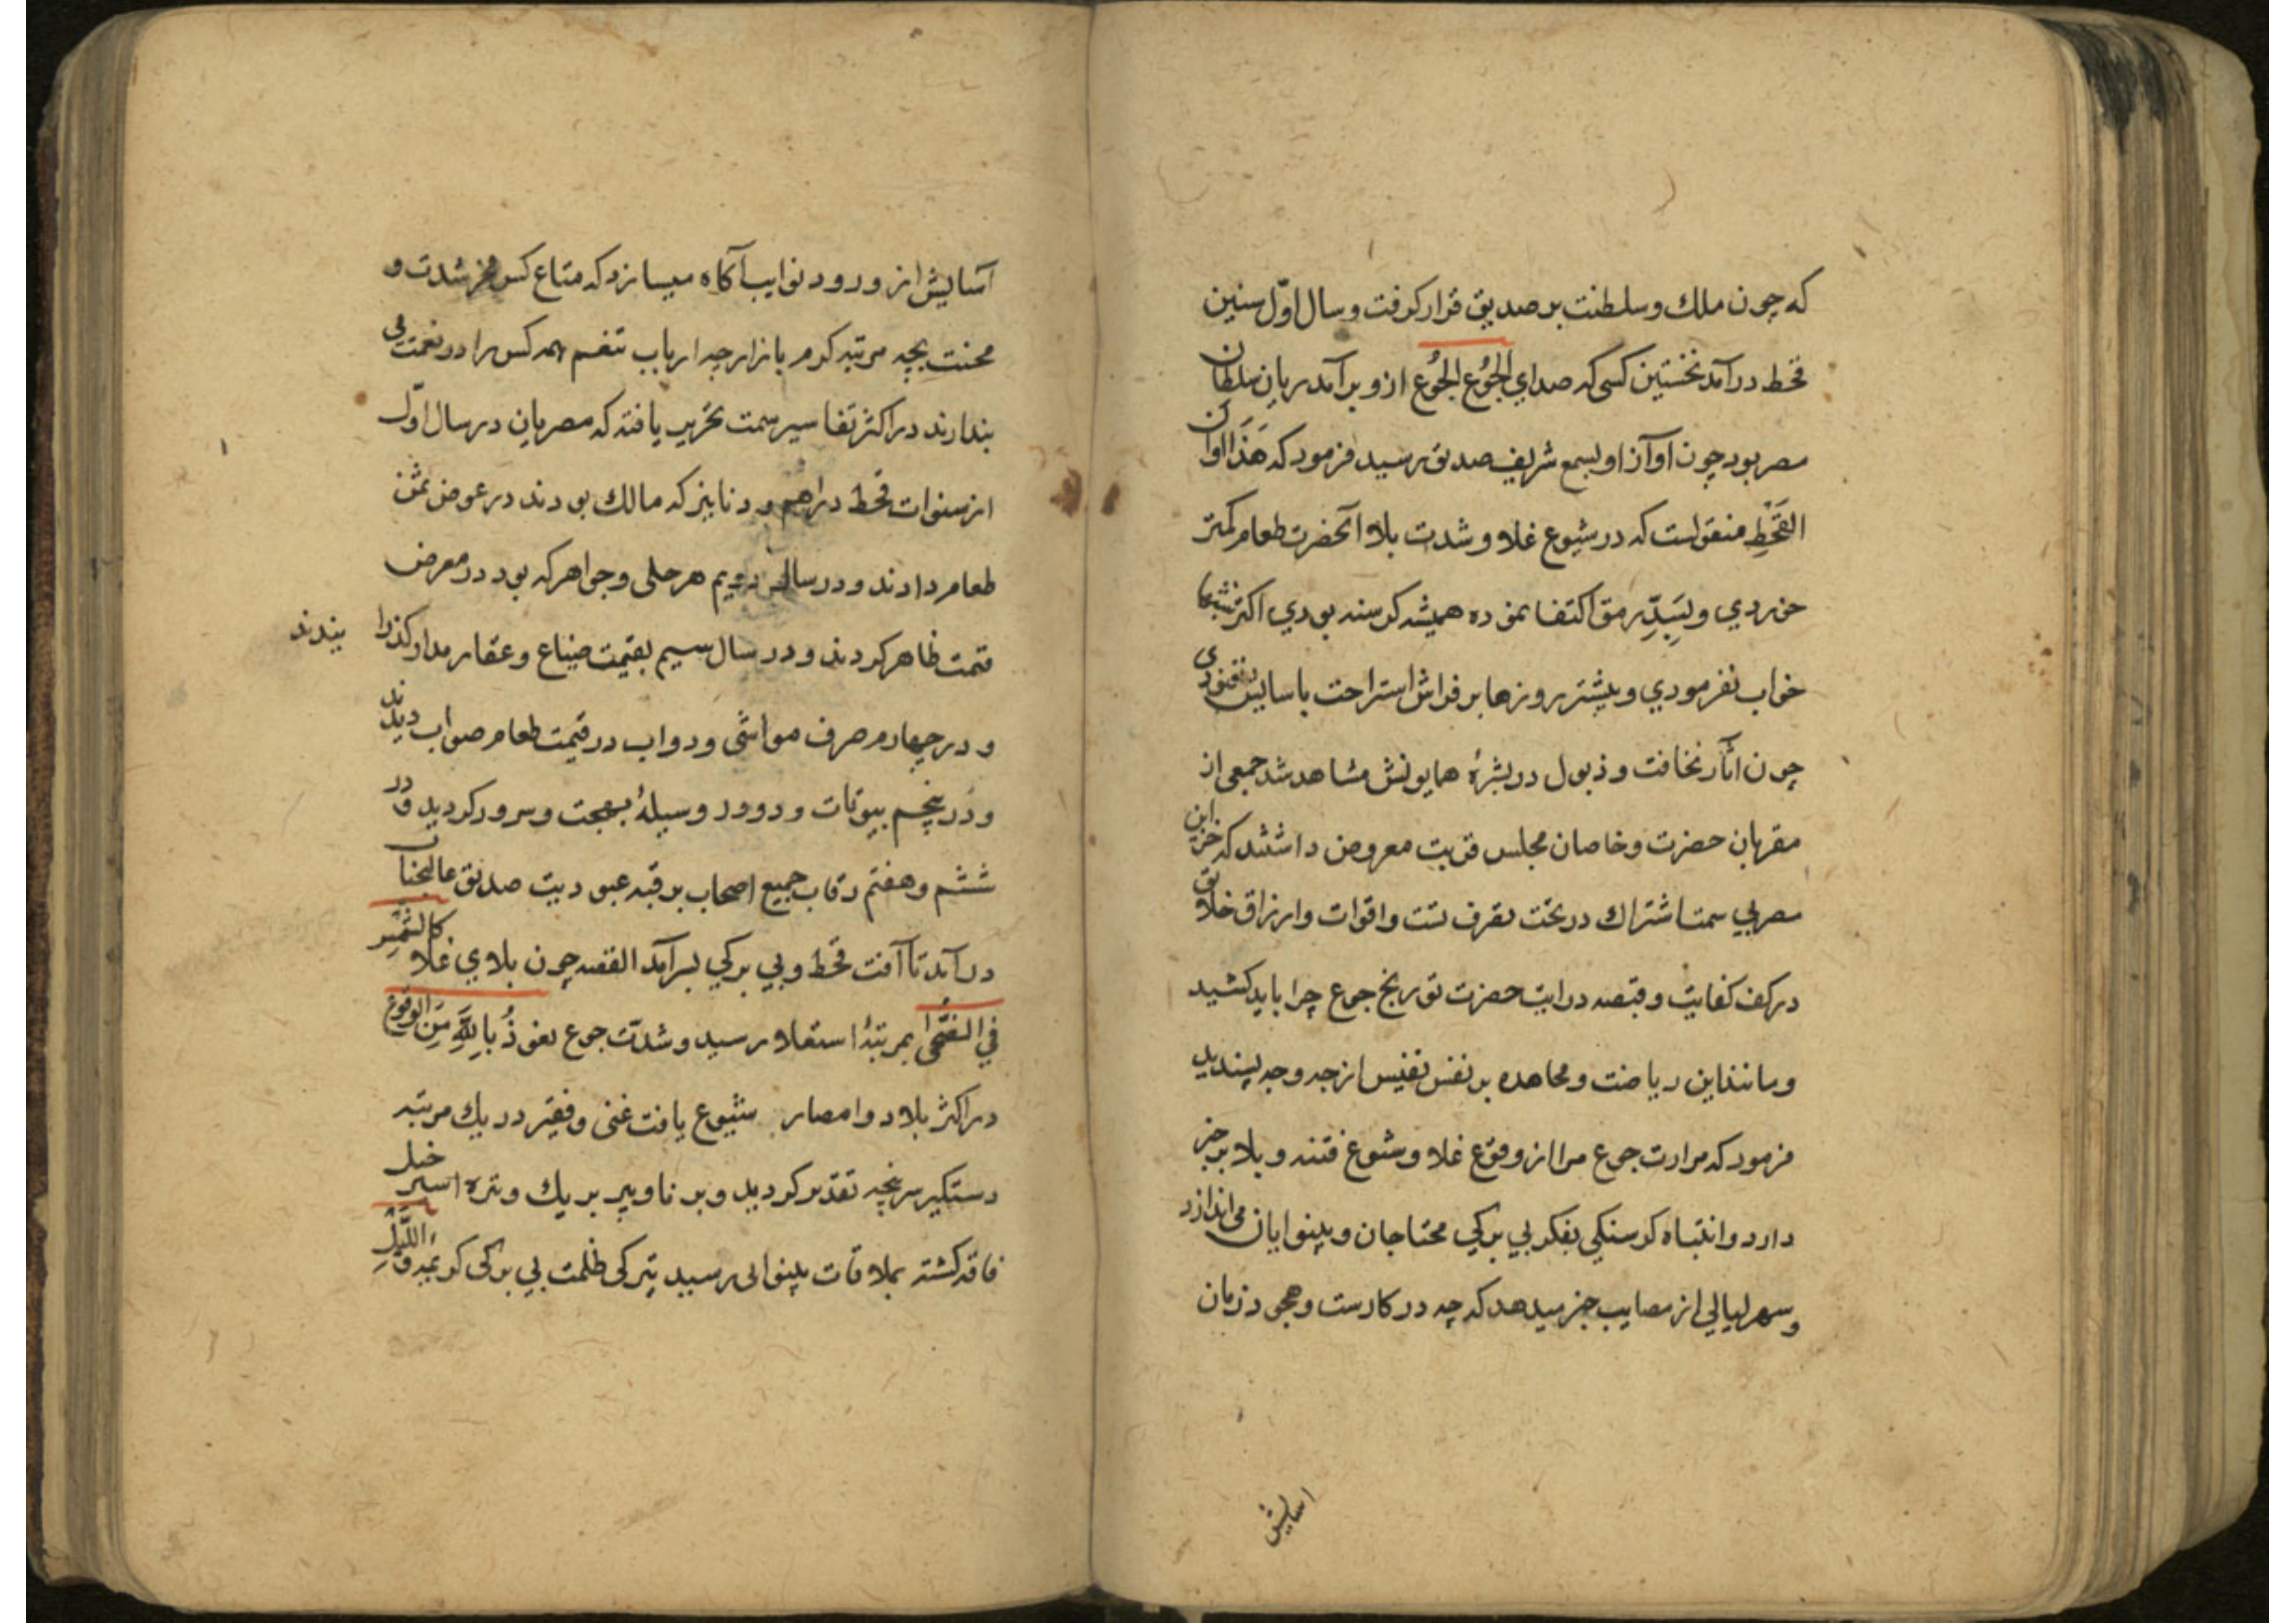 که چون ملک و سلطنت بر صدیق قرار گرفت و سال اوّل سنین
قحط درآمد نخستین کسی که صدای الجُوُع الجُوُع ازو برآمد ریان سلطان
مصر بود چون آوآز او بسمع شریف صدیق رسید فرمود که هَذَا اوان
القَحَطِ منقولست که در شیوع غلا و شدت بلا آنحضرت طعام کمتر
خوردی و بسَدِّ رمق اکتفا نموده همیشه کرسنه بودی اکثر شبها
خواب نفرمودی و بیشتر روزها بر فراش استراحت باسایش نغنودی
چون اثآر نحافت و ذبول در بشرهٔ همایونش مشاهد شد جمعی از
مقربان حضرت و خاصان مجلس قربت معروض داشتند که خزاین
مصر بی سمت اشتراک در تحت تصرف تست و اقوات و ارزاق خلایق
در کف کفایت و قبضه درایت حضرت تو رنج جوع چرا باید کشید
و مانند این ریاضت و مجاهده بر نفس نفیس از چه وجه پسندید
فرمود که مرارت جوع مرا از وقوع غلا و شیوع فتنه و بلا بر خبر
دارد و انتباه کرسنکی بفکر بی برکی محتاجان و بینوایان می اندازد
و سهر لیالی از مصایب خبر میدهد که چه در کارست و هجی در زمان
اسایش
آسایش از ورود نوایب آکاه میسازد که متاع کس مخر شدت و
محنت بچه مرتبه کرم بازار چه ارباب تنعم همه کس را در نعمت می
پندارند در اکثر تفاسیر سمت تحریر یافته که مصریان در سال اوّل
از سنوات قحط دراهم و دنانیر که مالک بودند در عوض ثمن
طعام دادند و در سال دویم هر حلی و جواهر که بود در معرض
قیمت ظاهر کردند و در سال سیم بقیمت ضیاع و عقار مدار کذرا
نیدند
و در چهارم صرف مواشی و دواب در قیمت طعام صواب دیدند
و دَر پنجم بیوتات و دور وسیلهٔ بهجت و سرور کردید و در
ششم و هفتم رقاب جمیع اصحاب بر قبه عبودیت صدیق عالیجناب
درآمد تا آفت قحط و بی برکی بسر آمد القصه چون بلای غلا کالشمس
فی الضّحی بمرتبهٔ استعلا رسید و شدّت جوع نعوذُ بِاللَّهِ مِنَ الوقوع
در اکثر بلاد و امصار شیوع یافت غنی و فقیر در یک مرتبه
دستکیر سرپنجه تقدیر کردید و برنا و پیر بر یک وتره اسیر خیل
فاقه کشته بملاقات بینوایی رسید تیرکی ظلمت بی برکی کریمه وَاللَّیلِ